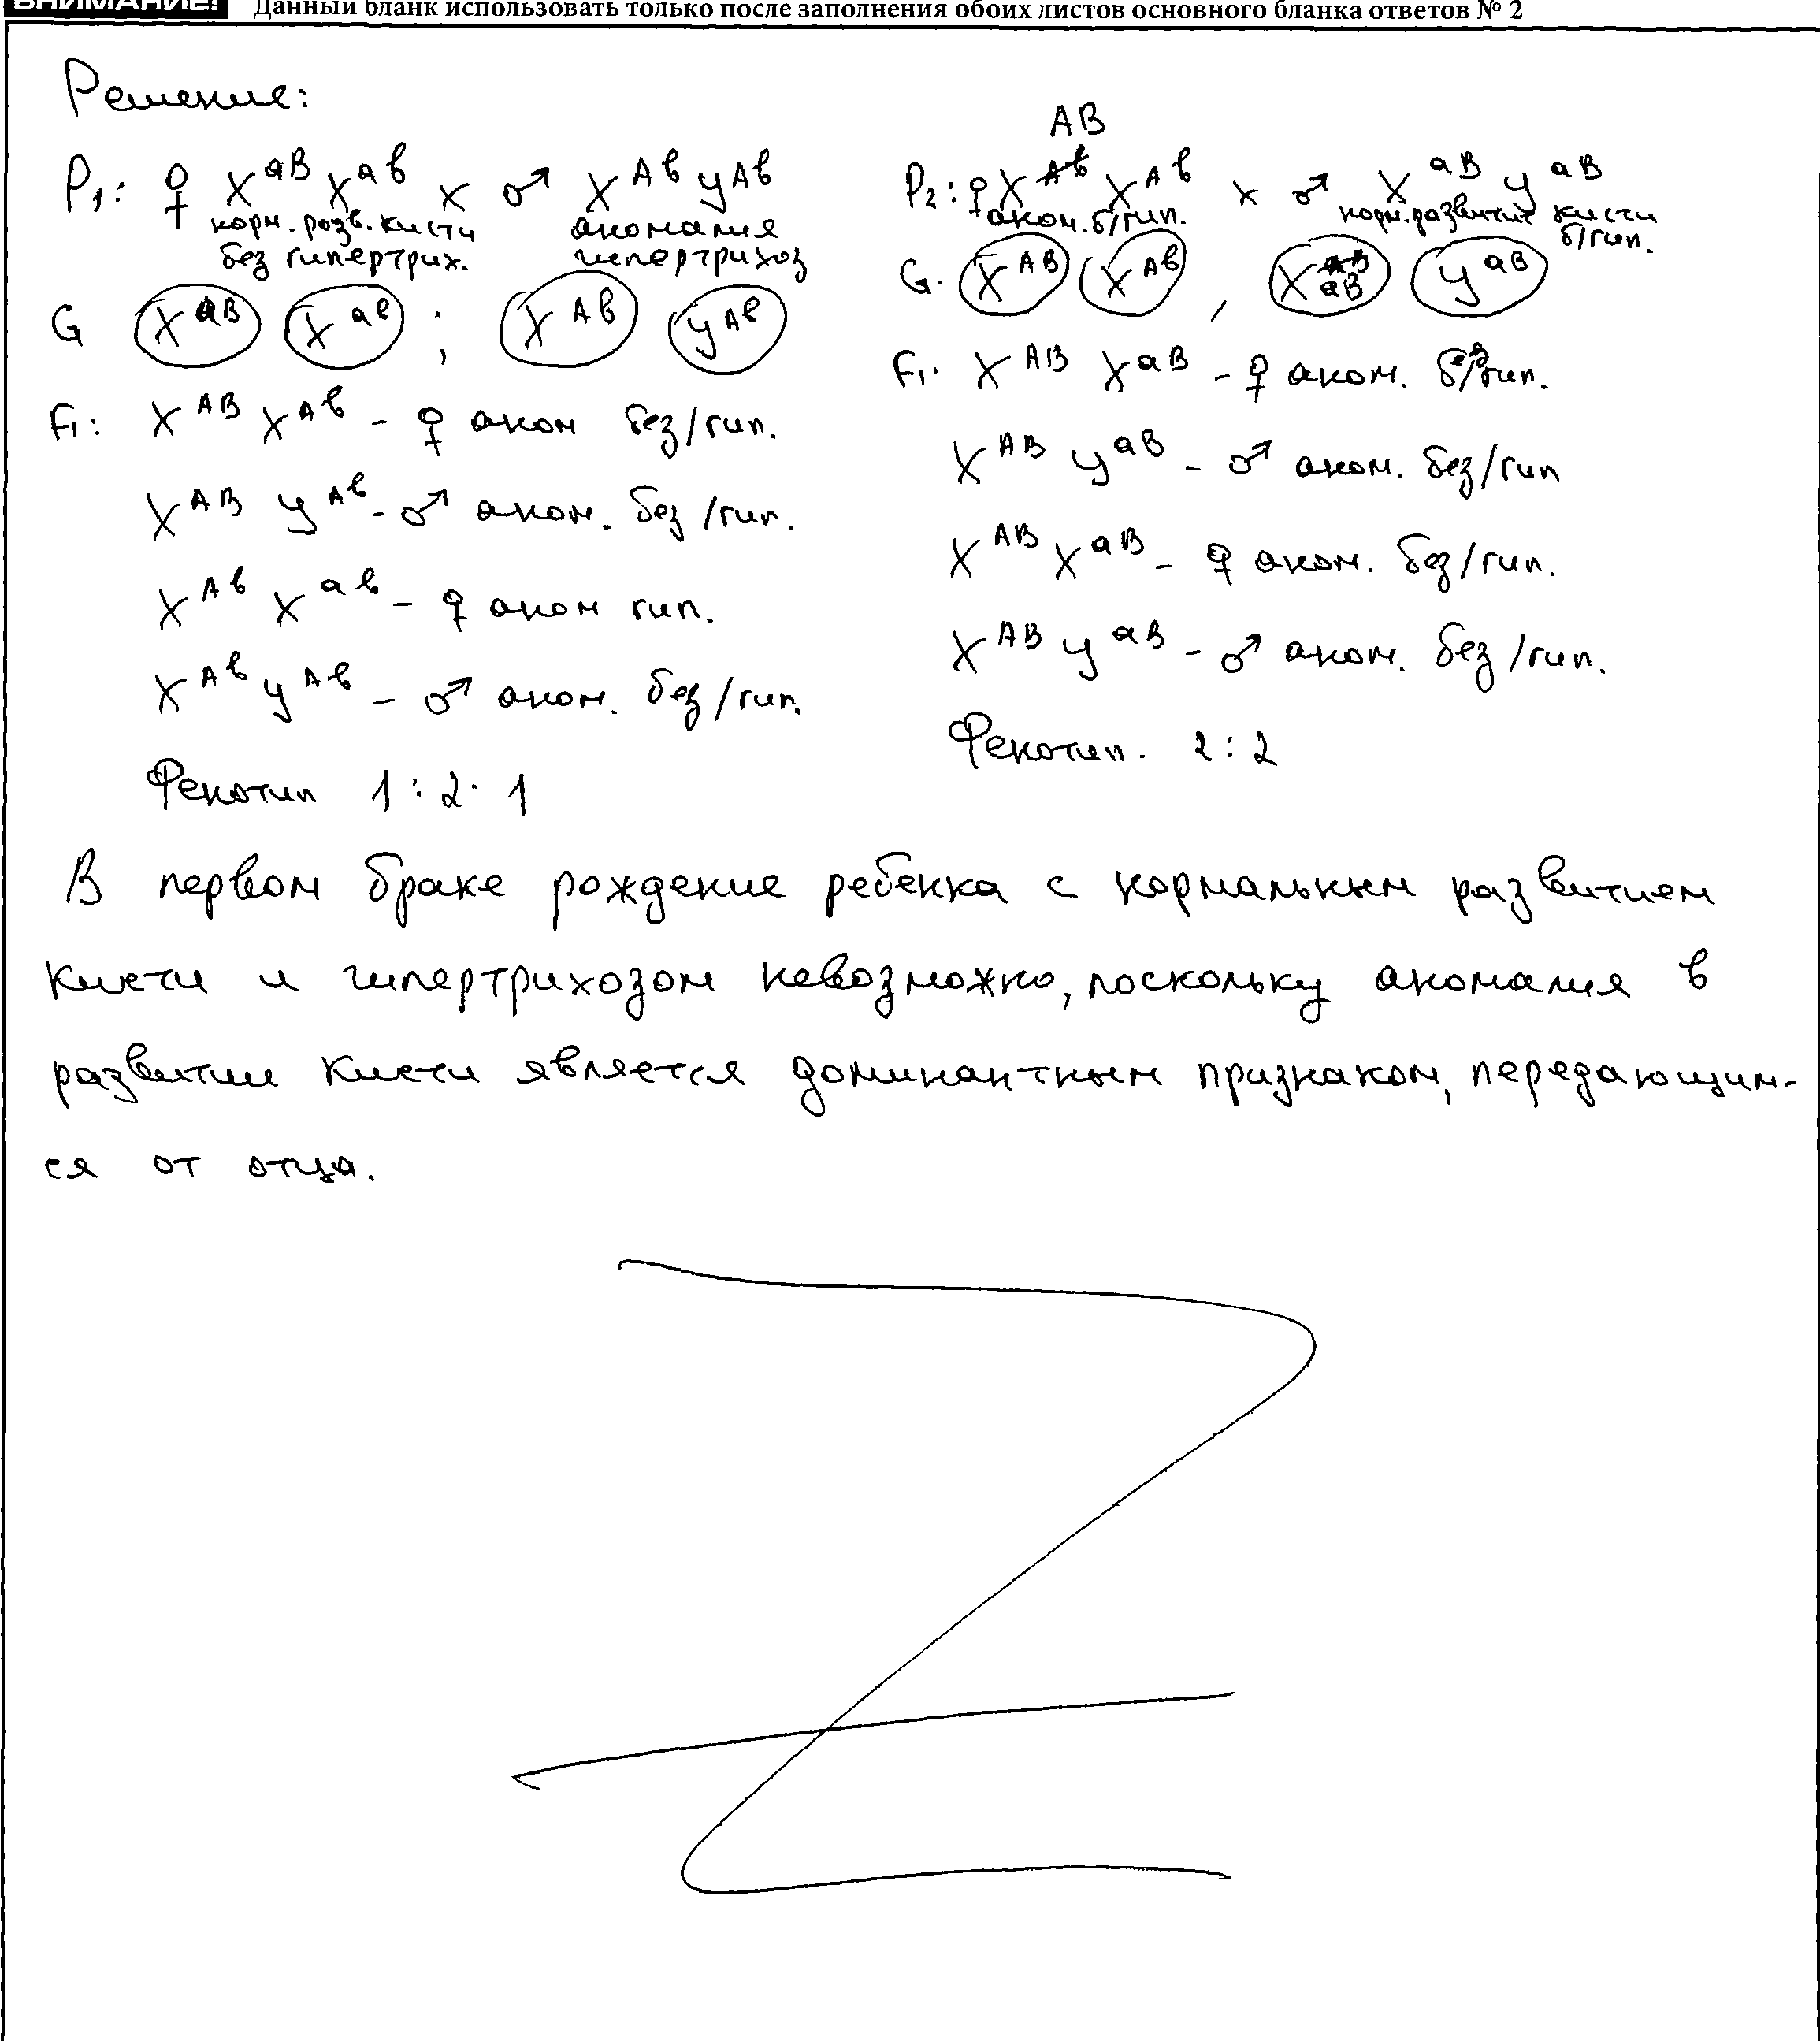 ВНИМАНИЕ! Данный бланк использовать только после заполнения обоих листов основного бланка ответов № 2
Решение:
P₁: ♀ X^aB X^ab x ♂ X^Ab Y^Ab
норм. розв. кисти аномалия
без гипертрих. гипертрихоз
G X^aB X^ab ; X^Ab Y^Ab
F₁: X^AB X^Ab - ♀ аном без/гип.
X^AB Y^Ab - ♂ аном. без/гип.
X^Ab X^ab - ♀ аном гип.
X^Ab Y^Ab - ♂ аном. без/гип.
Фенотип 1:2:1
AB
P₂: ♀ X^Ab X^Ab x ♂ X^aB Y^aB
аном. б/гип. норм. развитие кисти
б/гип.
G. X^AB X^Ab , X^aB Y^aB
F₁. X^AB X^aB - ♀ аном. без/гип.
X^AB Y^aB - ♂ аном. без/гип
X^AB X^aB - ♀ аном. без/гип.
X^AB Y^aB - ♂ аном. без/гип.
Фенотип. 2:2
В первом браке рождение ребенка с нормальным развитием
кисти и гипертрихозом невозможно, поскольку аномалия в
развитии кисти является доминантным признаком, передающим-
ся от отца.